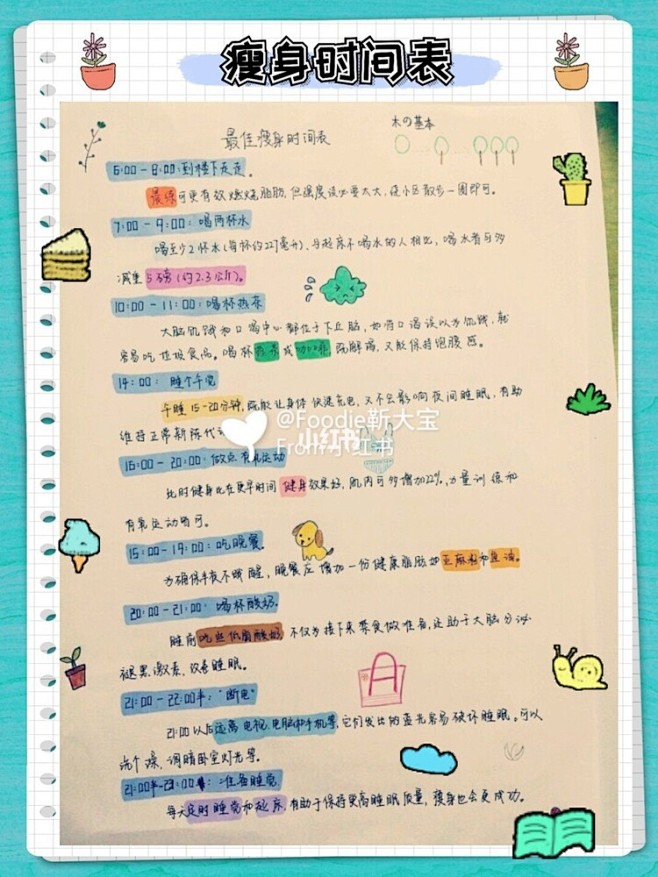 瘦身时间表
最佳瘦身时间表
木の基本
6:00-8:00:到楼下走走。
晨练可更有效燃烧脂肪,但强度没必要太大,绕小区散步一圈即可。
7:00-9:00:喝两杯水
喝至少2杯水(每杯约227毫升),与起床不喝水的人相比,喝水者可多
减重5磅(约2.3公斤)。
10:00-11:00:喝杯热茶
大脑饥饿和口渴中心都位于下丘脑,如将口渴误以为饥饿,就
容易吃垃圾食品。喝杯热茶或咖啡,既解渴,又能保持饱腹感。
14:00:睡个午觉
午睡15-20分钟,既能让身体快速充电,又不会影响夜间睡眠,有助
维持正常新陈代
@Foodie靳大宝
小红书
From 小红书
16:00-20:00:做点有氧运动
此时健身比在更早时间健身效果好,肌肉可多增加22%,力量训练和
有氧运动皆可。
15:00-19:00:吃晚餐。
为确保半夜不饿醒,晚餐应增加一份健康脂肪如亚麻籽和鱼油。
20:00-21:00:喝杯酸奶。
睡前吃些低脂酸奶不仅为接下来禁食做准备,还助于大脑分泌
褪黑激素,改善睡眠。
21:00-22:00半:"断电"
21:00以后远离电视、电脑和手机等,它们发出的蓝光容易破坏睡眠。可以
洗个澡、调暗卧室灯光等。
21:00半-23:00半:准备睡觉
每天定时睡觉和起床,有助于保持更高睡眠质量,瘦身也会更成功。
A